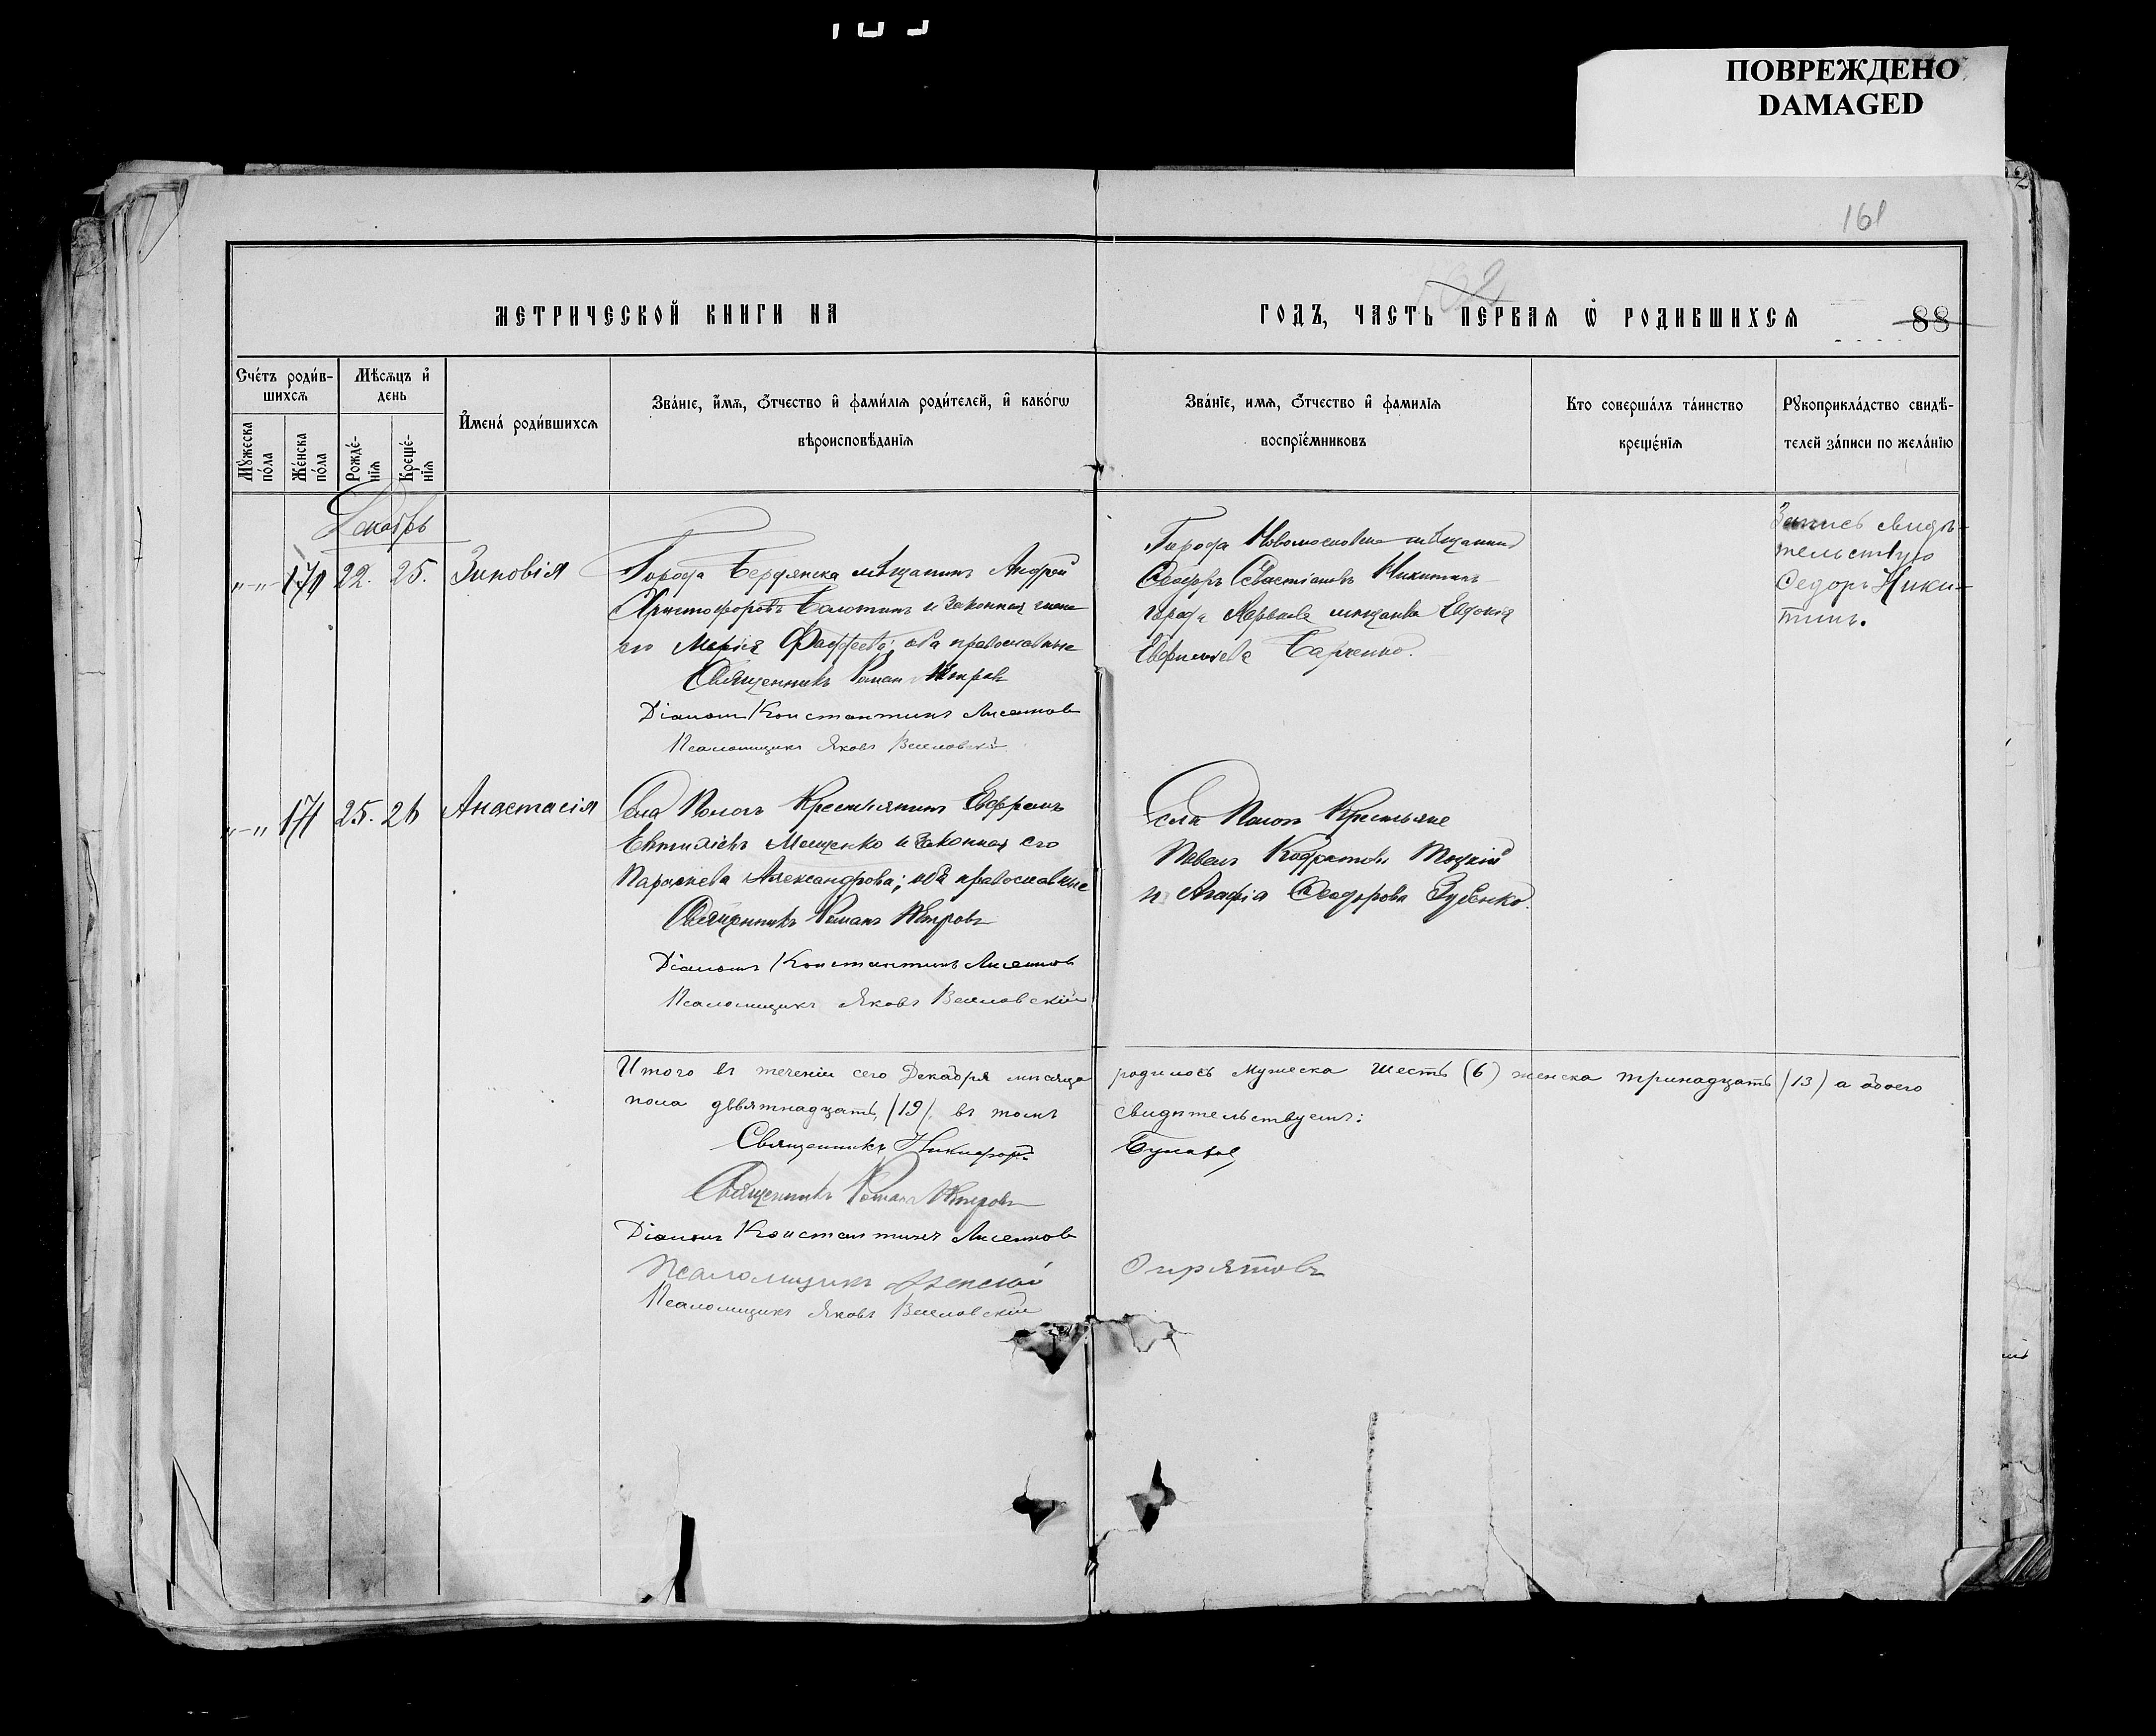 ПОВРЕЖДЕНО
DAMAGED
161
МЕТРИЧЕСКОЙ КНИГИ НА
ГОДЪ, ЧАСТЬ ПЕРВАЯ Ѡ РОДИВШИХСЯ
88
Счетъ родив-
шихся
Мѣсяцъ и
день
Мужеска
пола
Женска
пола
Рожде-
нія
Креще-
нія
Имена родившихся
Званіе, имя, отчество и фамилія родителей, и какогѡ
вѣроисповѣданія
Званіе, имя, отчество и фамилія
воспріемниковъ
Кто совершалъ таинство
крещенія
Рукоприкладство свидѣ-
телей записи по желанію
Декабрь
"–" 170 22. 25. Зиновія
Города Бердянска мѣщанинъ Андрей
Христофоровъ и законная жена
его Марія оба православные
Священникъ Роман Петров
Діаконъ Константинъ Лисенков
Псаломщикъ Яковъ
Города Новомосковска мѣщанинъ
Феодоръ Севастіановъ Никитинъ
города Харькова мѣщанка Евдокія
Запись свидѣ-
тельствую
Федоръ Ники-
тинъ.
"–" 171 25. 26 Анастасія
Села Пологъ Крестьянинъ Евфремъ
Евтихіевъ Мещенко и законная его
Параскева Александрова; оба православные
Священникъ Романъ Петровъ
Діаконъ Константинъ Лисенков
Псаломщикъ Яковъ
Села Пологъ Крестьяне
Павелъ Кодратовъ Тоцкій
и Агафія Феодорова Зубенко.
Итого въ теченіи сего Декабря мѣсяца родилось мужеска шесть (6) женска тринадцать (13) а обоего
пола девятнадцать, (19), въ томъ свидѣтельствуемъ:
Священникъ Никифоръ
Священникъ Романъ Петровъ
Діаконъ Константинъ Лисенков
Псаломщикъ
Псаломщикъ Яковъ